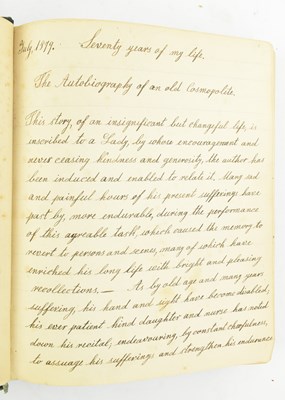 July, 1879. Seventy years of my life.
The Autobiography of an old Cosmopolite.
This story, of an insignificant but changeful life, is
inscribed to a Lady, by whose encouragement and
never ceasing kindness and generosity, the author has
been induced and enabled to relate it. Many sad
and painful hours of his present sufferings have
past by, more endurable, during the performance
of this agreable task, which caused the memory to
revert to persons and scenes, many of which have
enriched his long life with bright and pleasing
recollections. — As by old age and many years
suffering, his hand and sight have become disabled,
his ever patient kind daughter and nurse has noted
down his recital, endeavouring, by constant chearfulness,
to assuage his sufferings and strengthen his endurance